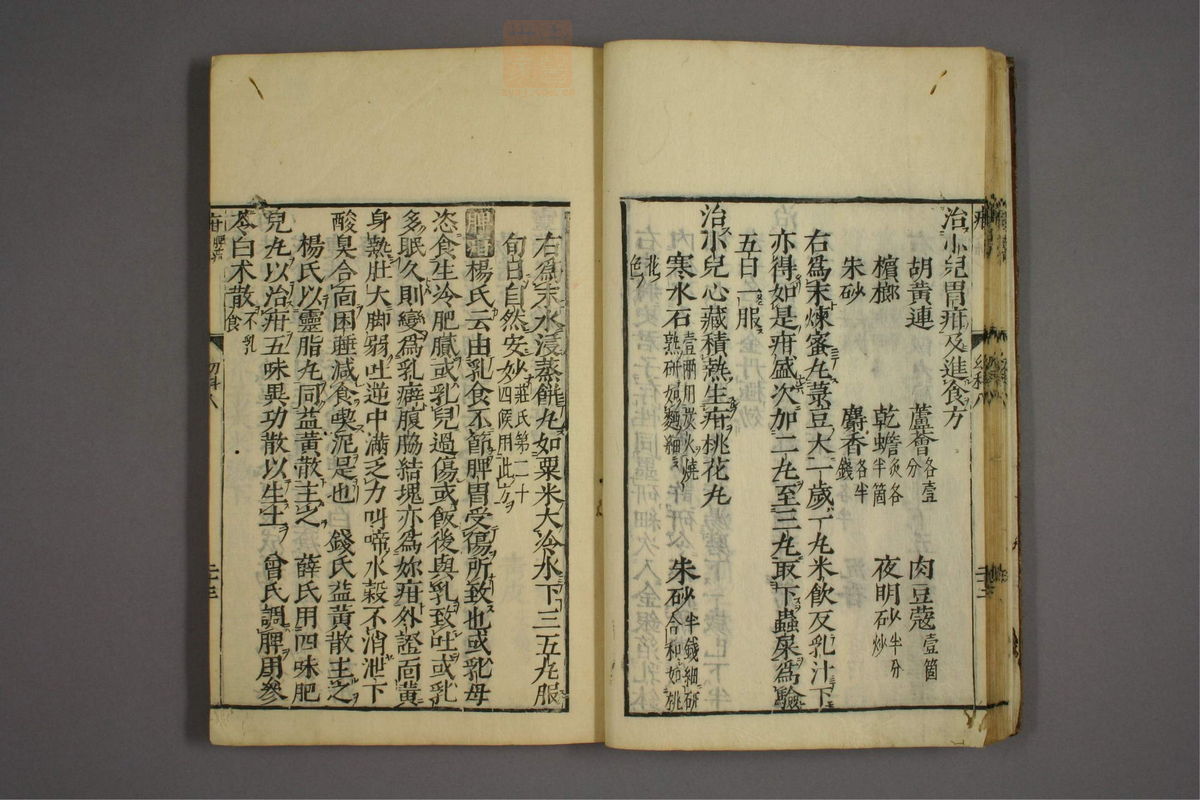 治小兒胃疳及進食方
胡黃連　蘆薈各壹分　肉豆蔻壹箇
檳榔　乾蟾炙各半箇　夜明砂半分炒
朱砂　麝香各半錢
右爲末煉蜜丸菉豆大一歲丁丸米飲及乳汁下
亦得如是疳盛次加二丸至三丸取下蟲泉爲驗
五日一服
治小兒心藏積熱生疳桃花丸
寒水石壹兩用炭火燒熟研如麵細　朱砂半錢細研合和如桃
花色
右爲末水浸蒸餅丸如粟米大冷水下三五丸服
旬日自然安妙莊氏第二十四候用此方
脾疳楊氏云由乳食不節脾胃受傷所致也或乳母
恣食生冷肥膩或乳兒過傷或飯後與乳致吐或乳
多眠久則變爲乳癖腹脇結塊亦爲妳疳外證面黃
身熱肚大脚弱吐逆中滿乏力叫啼水穀不消泄下
酸臭合面困睡減食喫泥是也　錢氏益黃散主之
楊氏以靈脂丸同益黃散主之　薛氏用四味肥
兒丸以治疳五味異功散以生土　曾氏調脾用參
苓白术散不乳食